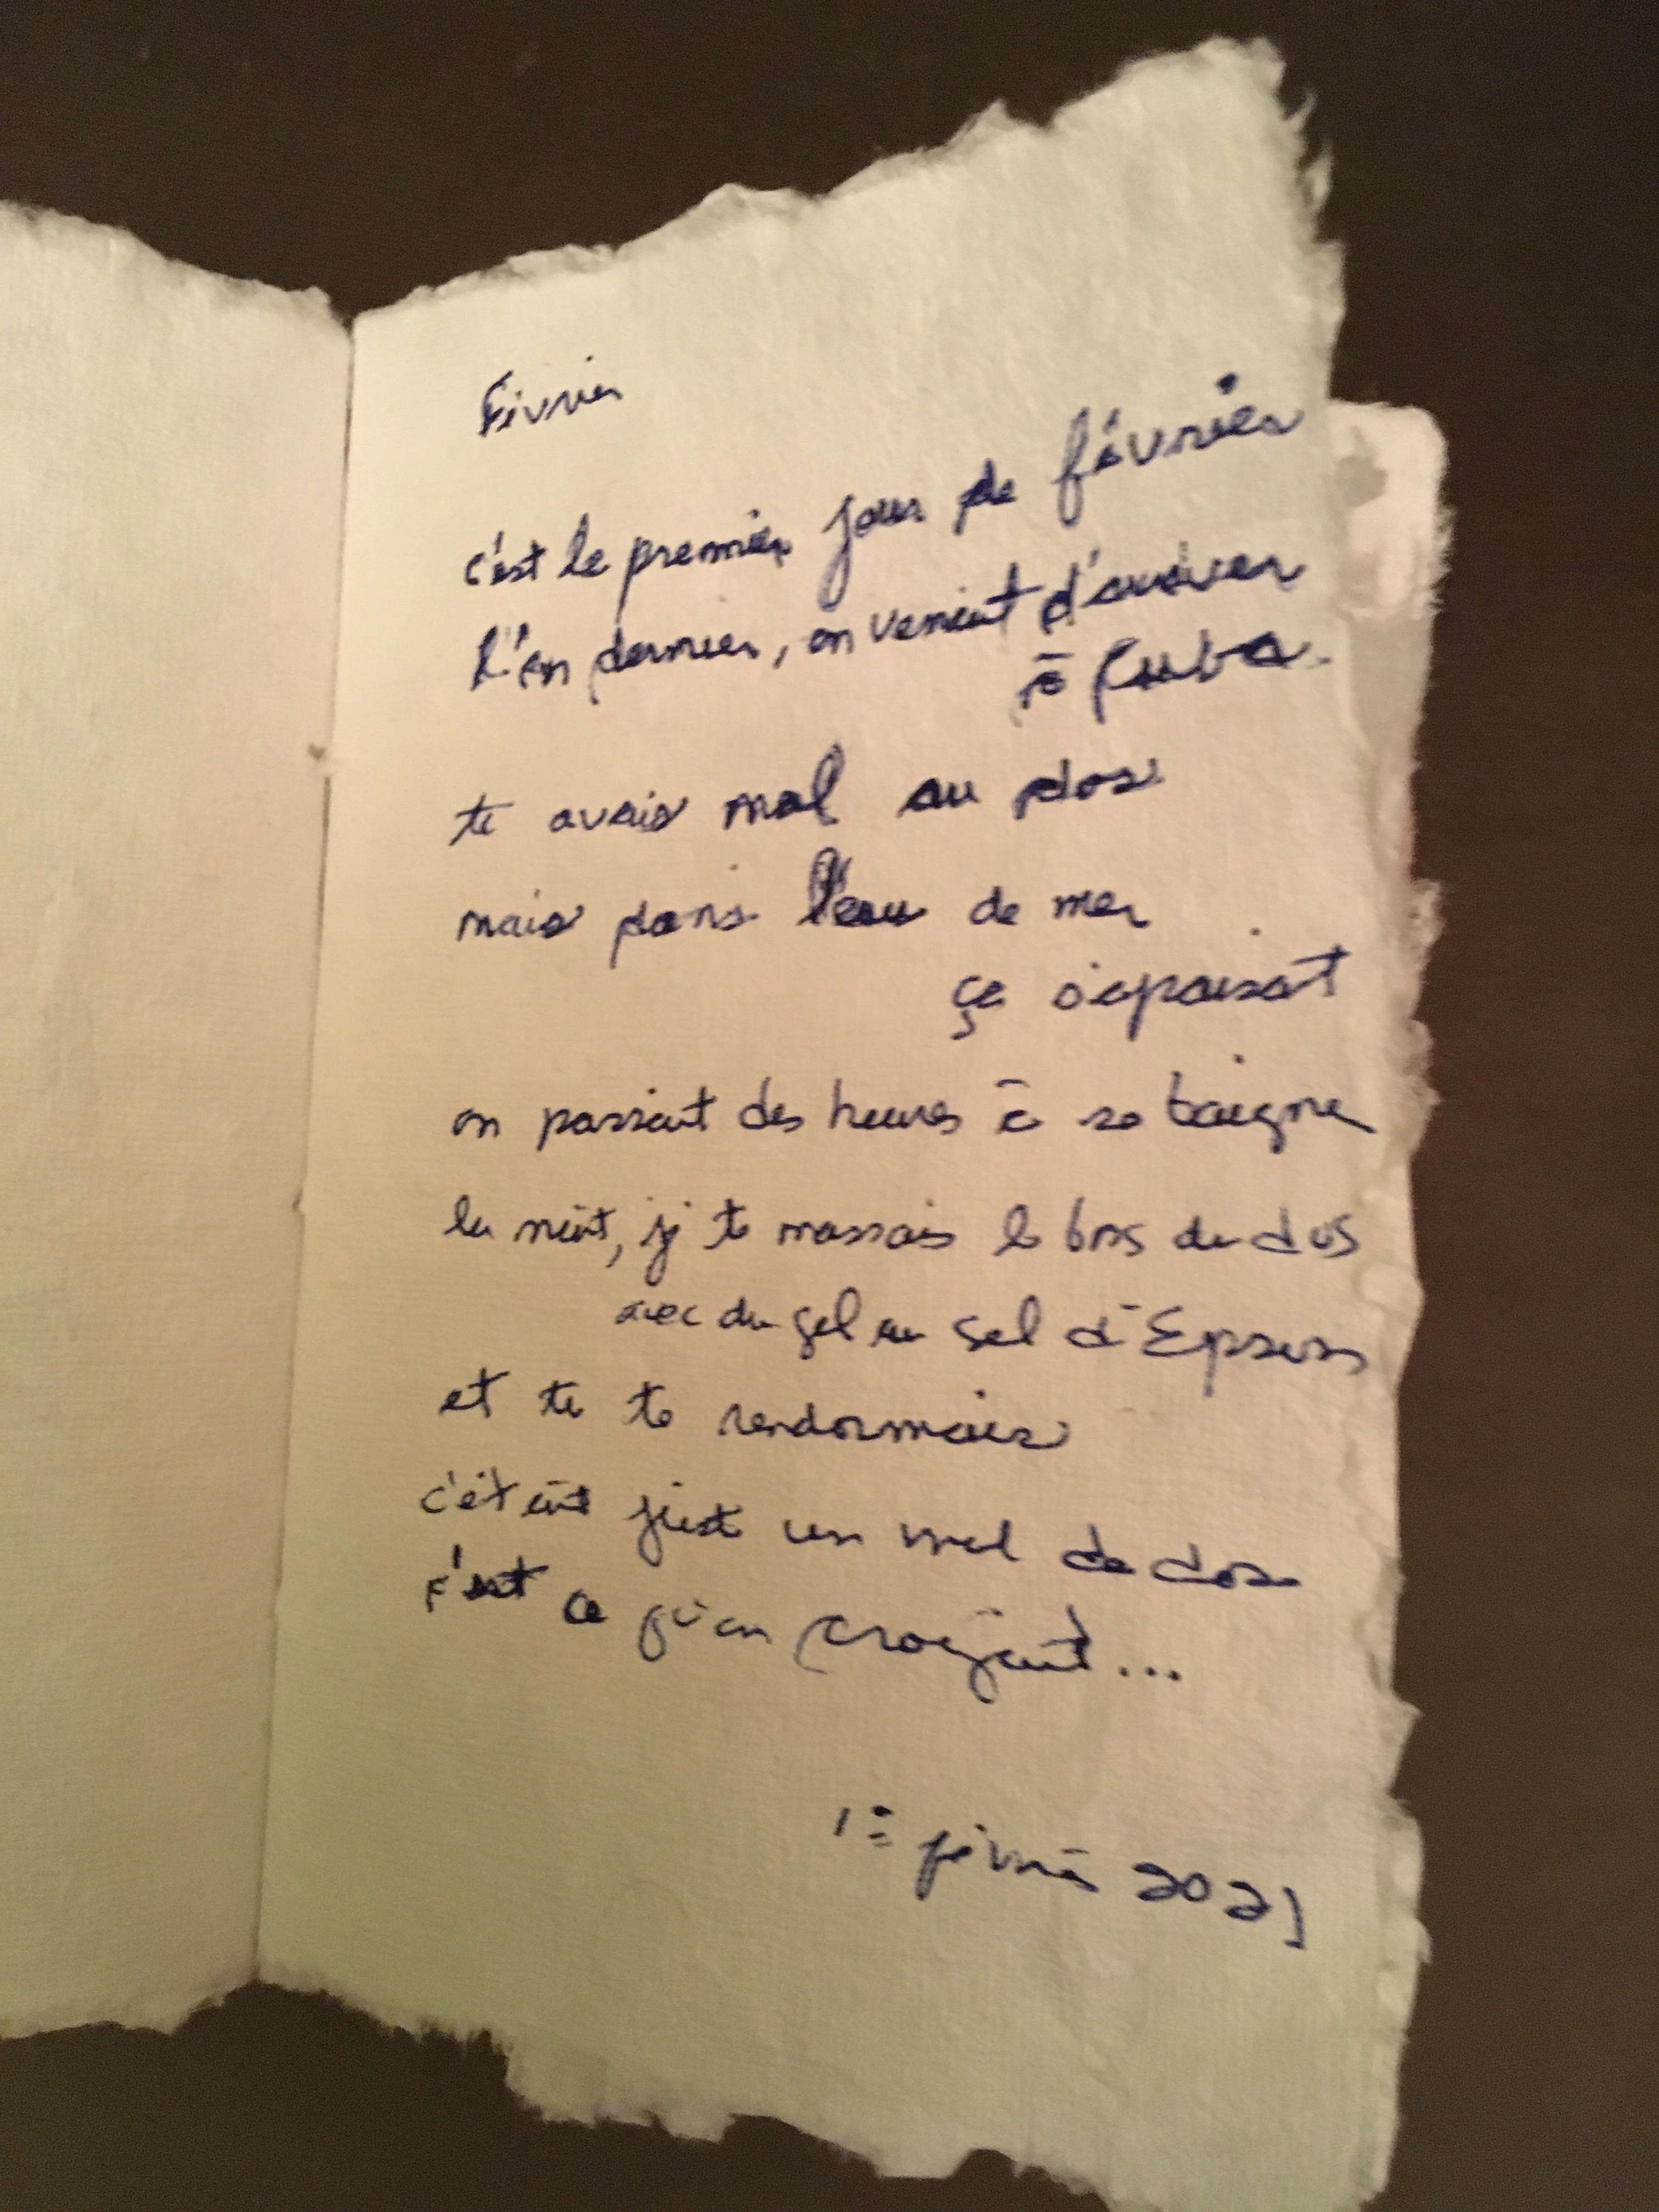 Février
c'est le premier jour de février
L'an dernier, on venait d'arriver
à Cuba.
tu avais mal au dos
mais dans l'eau de mer
ça s'apaisait
on passait des heures à se baigner
la nuit, je te massais le bas du dos
avec du gel au sel d'Epsom
et tu te rendormais
c'était juste un mal de dos
c'est ce qu'on croyait...
1er février 2021